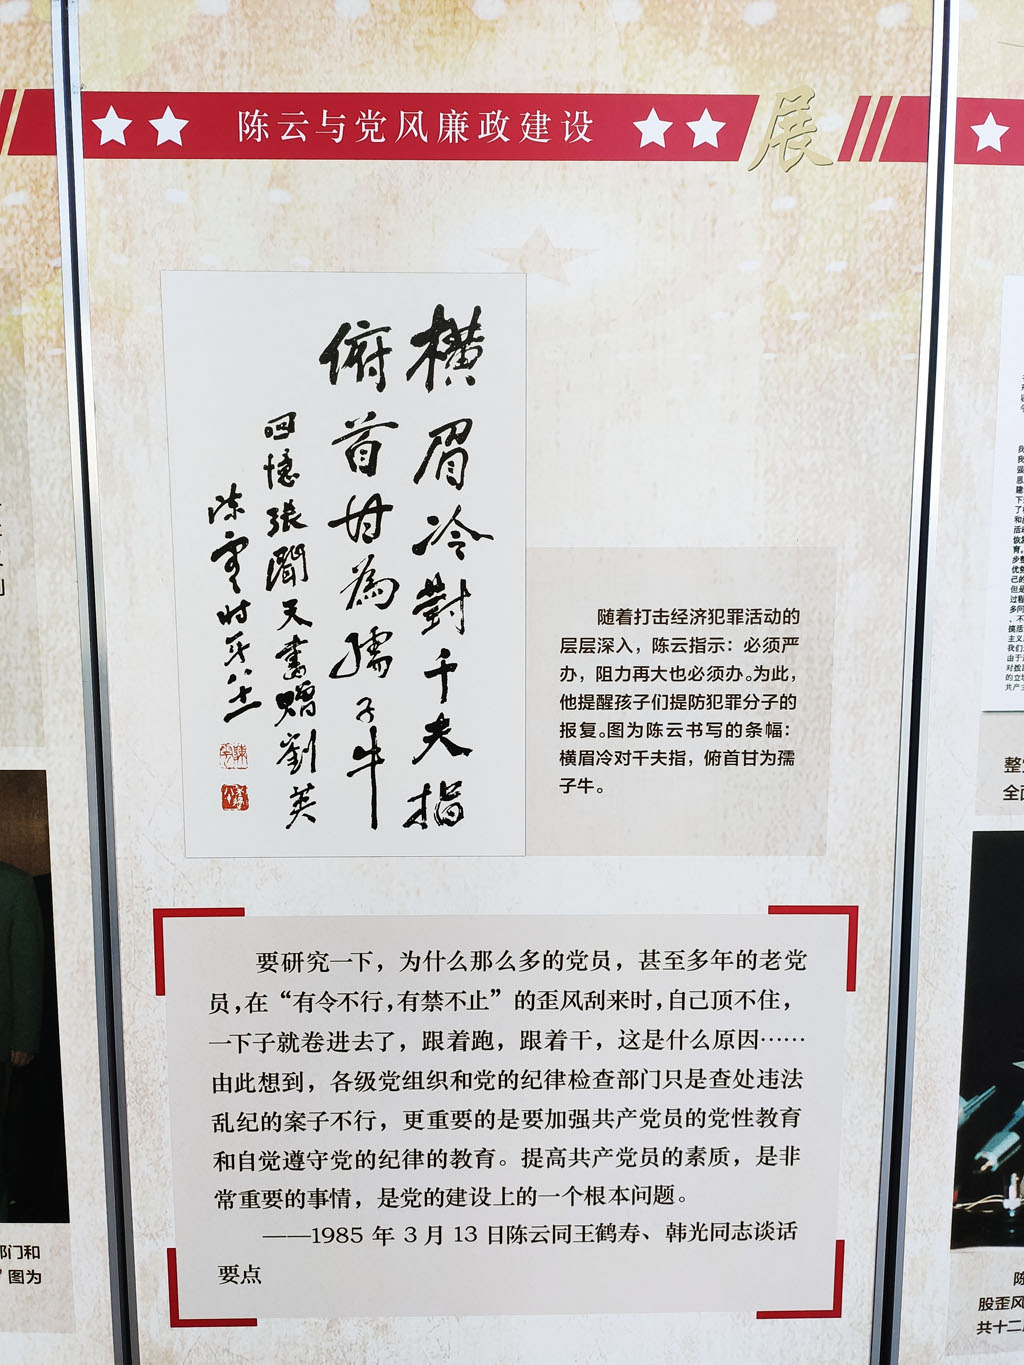 陈云与党风廉政建设
展
横眉冷對千夫指
俯首甘為孺子牛
回憶張聞天書贈劉英
陈雲时年八十一
随着打击经济犯罪活动的
层层深入，陈云指示：必须严
办，阻力再大也必须办。为此，
他提醒孩子们提防犯罪分子的
报复。图为陈云书写的条幅：
横眉冷对千夫指，俯首甘为孺
子牛。
要研究一下，为什么那么多的党员，甚至多年的老党
员，在“有令不行，有禁不止”的歪风刮来时，自己顶不住，
一下子就卷进去了，跟着跑，跟着干，这是什么原因……
由此想到，各级党组织和党的纪律检查部门只是查处违法
乱纪的案子不行，更重要的是要加强共产党员的党性教育
和自觉遵守党的纪律的教育。提高共产党员的素质，是非
常重要的事情，是党的建设上的一个根本问题。
——1985 年 3 月 13 日陈云同王鹤寿、韩光同志谈话
要点
部门和
”图为
整
全面
陈
股歪风
共十二